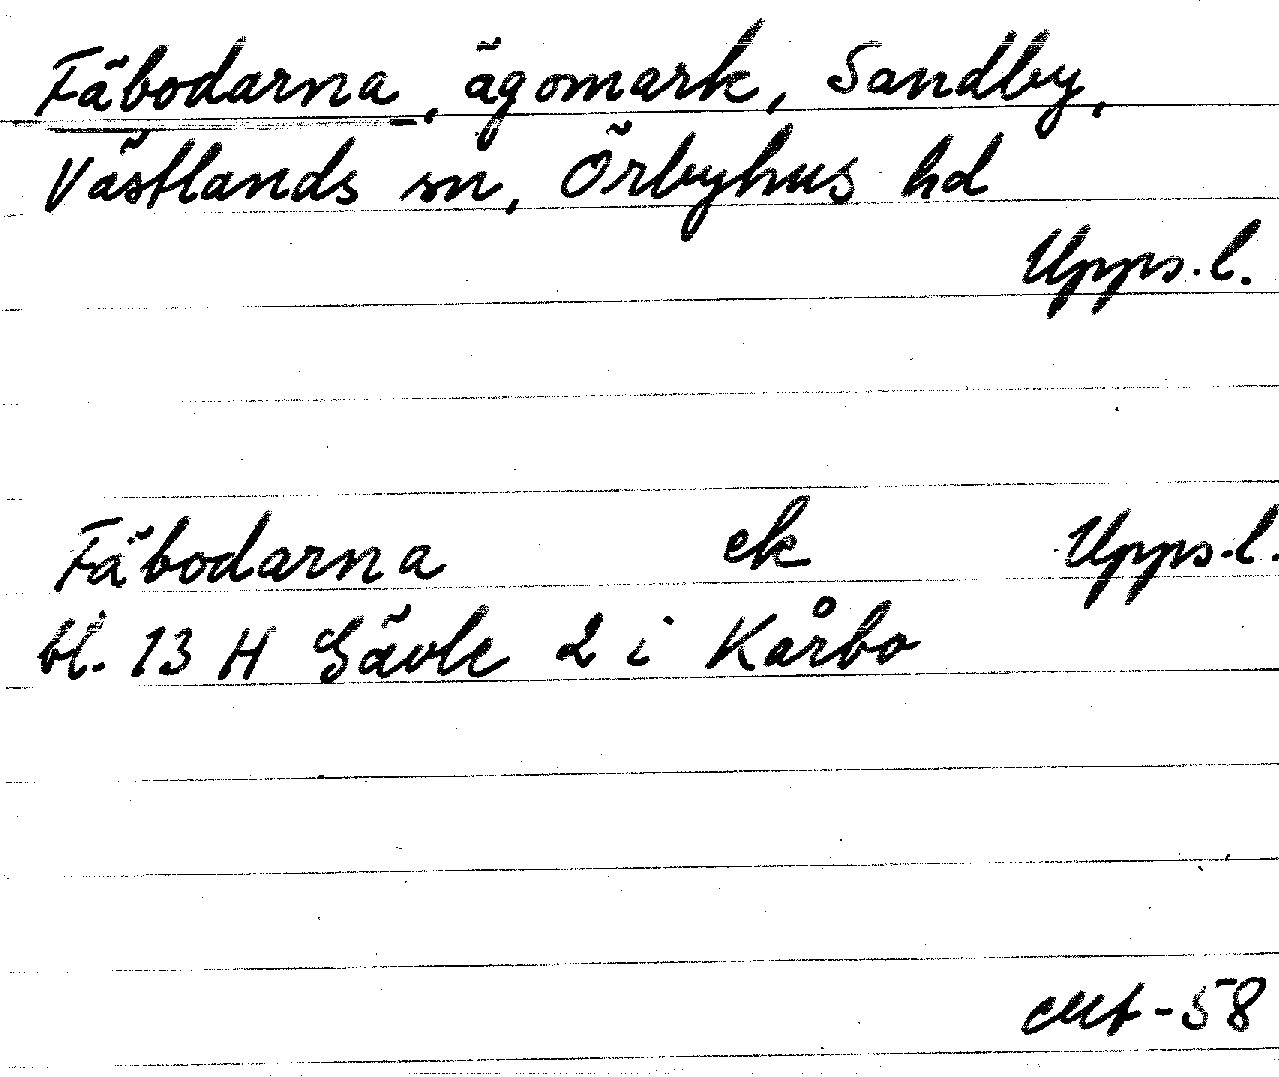 Fäbodarna, ägomark, Sandby,
Västlands sn, Örbyhus hd
Upps. l.
Fäbodarna ek Upps. l.
bl. 13 H Gävle 2 i Kårbo
-58